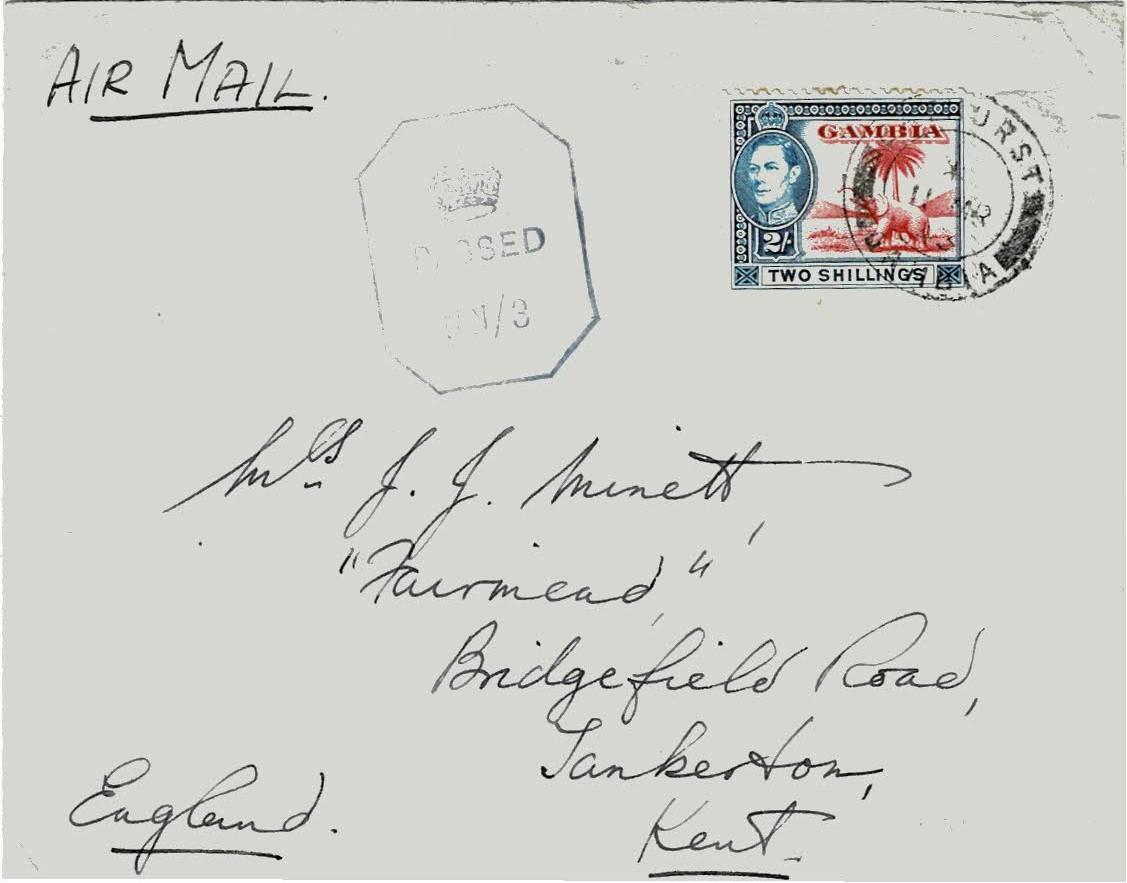 AIR MAIL.
GAMBIA
2/-
TWO SHILLINGS
PASSED
/3
Mrs J. J. Minett,
"Fairmead,"
Bridgefield Road,
Tankerton,
Kent.
England.